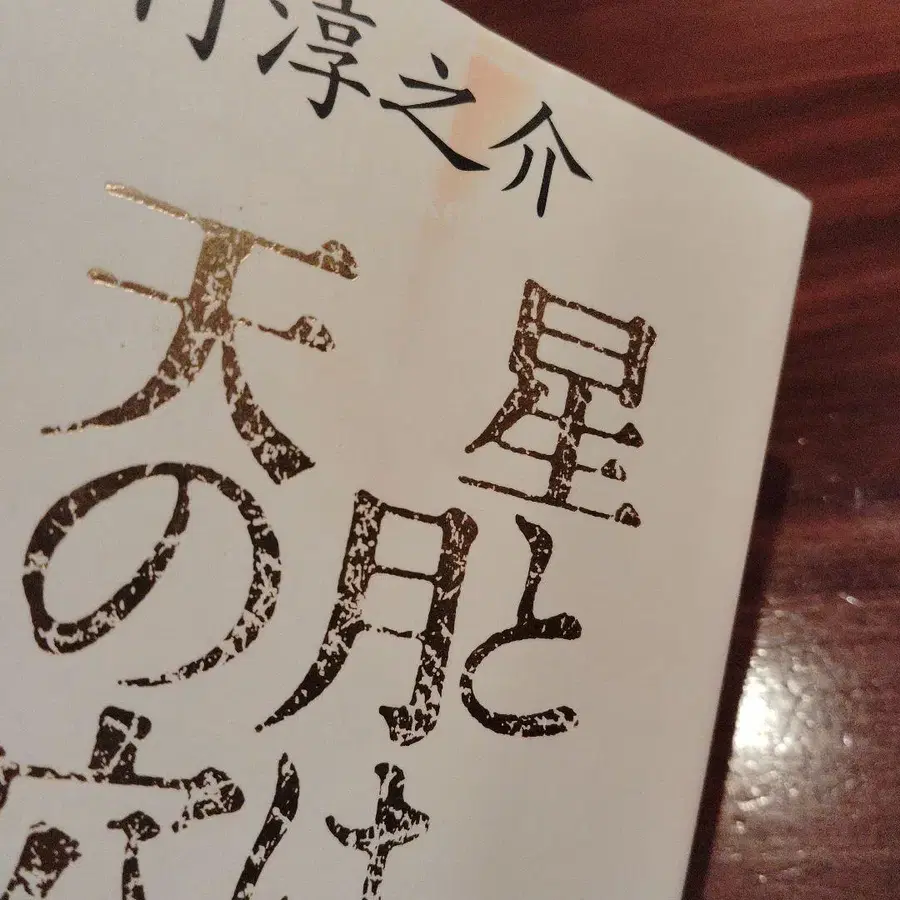 行淳之介
星と
月は
天の穴